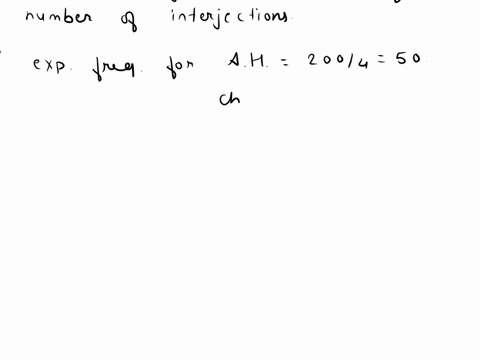 number of interjections
exp. freq. for A.H. = 200/4 = 50
ch